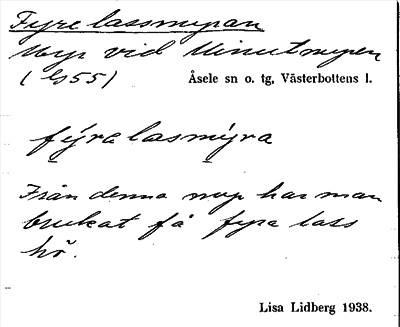 Fyrelassmyran
Myr vid Minutmyren
(Gs55) Åsele sn o. tg, Västerbottens l.
fýrelasmýra
Från denna myr har man
brukat få fyra lass
hö.
Lisa Lidberg 1938.